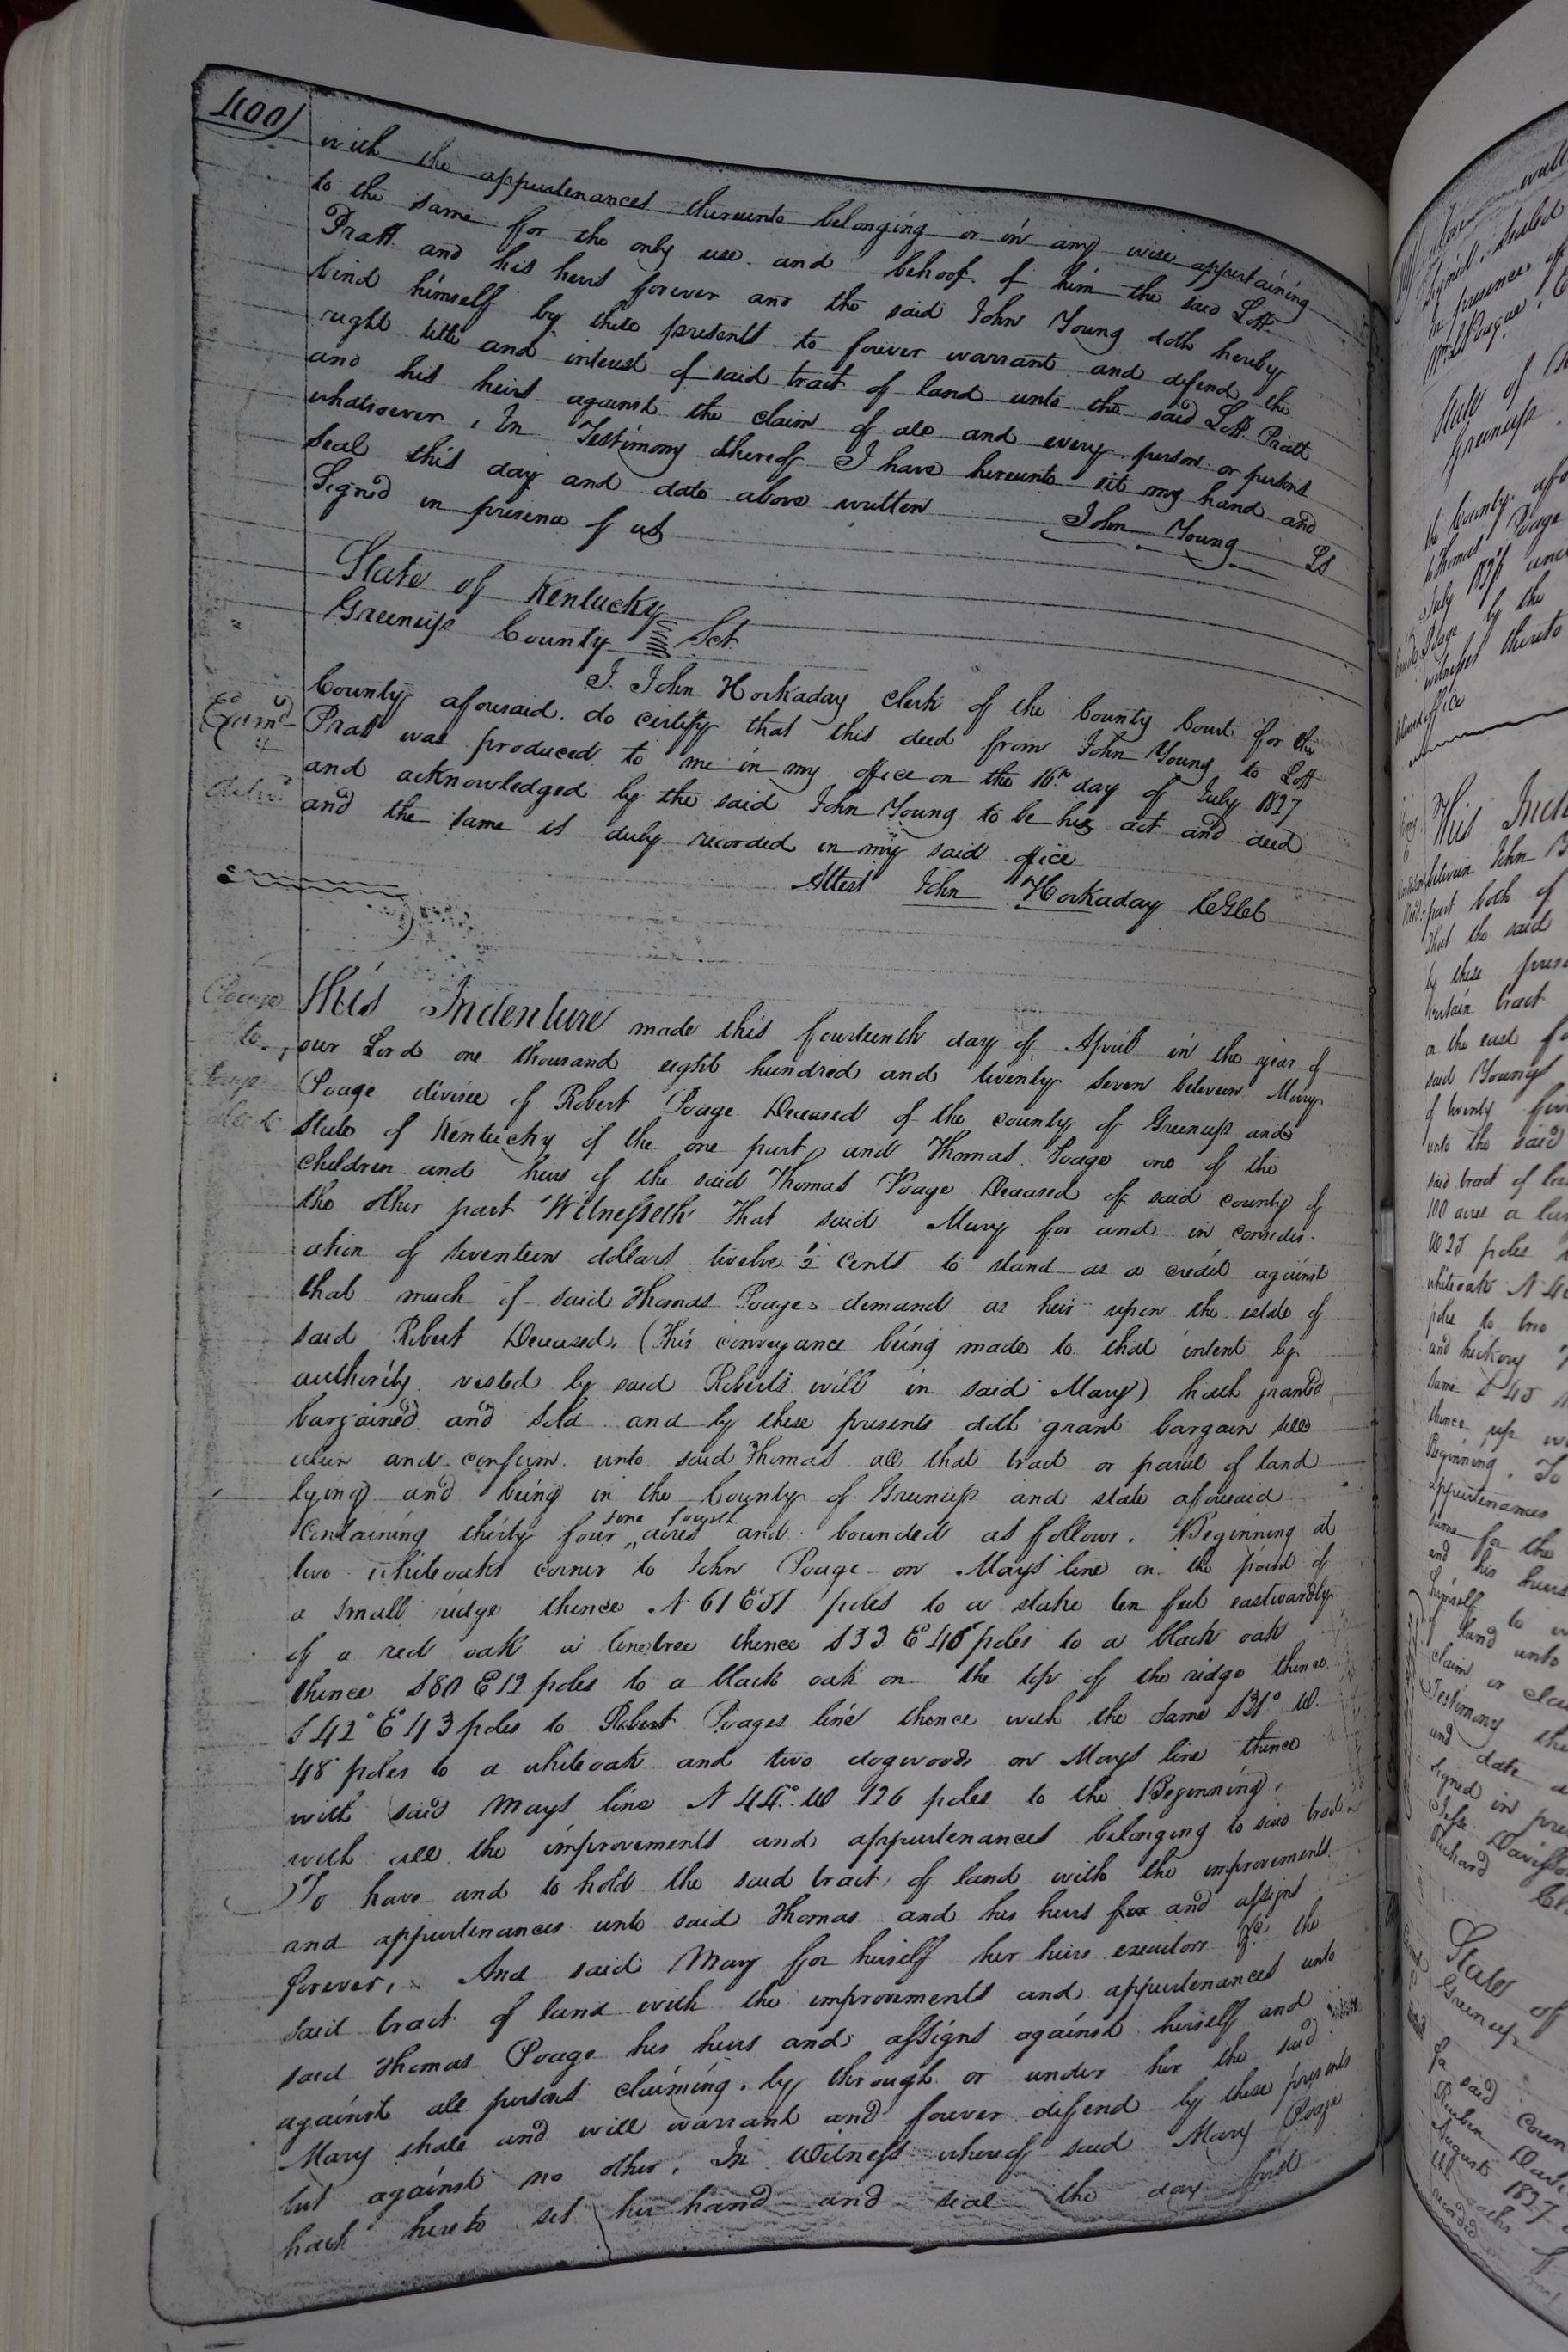 400
with the appurtenances thereunto belonging or in any wise appertaining
to the same for the only use and behoof of him the said Lott
Pratt and his heirs forever and the said John Young doth hereby
bind himself by these presents to forever warrant and defend the
right title and interest of said tract of land unto the said Lott Pratt
and his heirs against the claim of all and every person or persons
whatsoever, In Testimony thereof I have hereunto set my hand and
Seal this day and date above written John Young LS
Signed in presence of us
State of Kentucky
Greenup County Sct
I. John Hockaday Clerk of the County Court for the
County aforesaid. do certify that this deed from John Young to Lott
Pratt was produced to me in my office on the 16th day of July 1827
and acknowledged by the said John Young to be his act and deed
and the same is duly recorded in my said office
Attest John Hockaday
Exam'd
&
Poage
to
Poage
This Indenture made this fourteenth day of April in the year of
our Lord one thousand eight hundred and twenty seven between Mary
Poage divisee of Robert Poage Deceased of the county of Greenup and
State of Kentucky of the one part and Thomas Poage one of the
children and heirs of the said Thomas Poage Deceased of said county of
the other part Witnesseth That said Mary for and in consider-
ation of seventeen dollars twelve ½ cents to stand as a credit against
that much of said Thomas Poages demand as heir upon the estate of
said Robert Deceased, (this conveyance being made to that intent by
authority vested by said Roberts will in said Mary) hath granted
bargained and sold and by these presents doth grant bargain sell
alien and confirm unto said Thomas all that tract or parcel of land
lying and being in the County of Greenup and state aforesaid
Containing thirty four acres and bounded as follows. Beginning at
two whiteoaks corner to John Poage on Mays line on the point of
a small ridge thence N 61 E 51 poles to a stake ten feet eastwardly
of a red oak a linetree thence S 33 E 46 poles to a black oak
thence S 80 E 12 poles to a black oak on the top of the ridge thence
S 42° E 43 poles to Robert Poages line thence with the same S 31° W
48 poles to a whiteoak and two dogwoods on Mays line thence
with said Mays line N 44° W 126 poles to the Beginning,
with all the improvements and appurtenances belonging to said tract
To have and to hold the said tract of land with the improvements
and appurtenances unto said Thomas and his heirs for and assigns
forever, And said Mary for herself her heirs executors &c the
said tract of land with the improvements and appurtenances unto
said Thomas Poage his heirs and assigns against herself and
against all persons claiming by through or under her the said
Mary shall and will warrant and forever defend by these presents
but against no other. In Witness whereof said Mary Poage
hath hereto set her hand and seal the day first
Signed, sealed
in presence of
State of
Greenup
the County
to Thomas Poage
July 1827 and
Poage by the
witness thereto
office
This Inde
between John
part both of
That the said
by these
certain tract
on the east
said Youngs
of twenty five
unto the said
said tract of
100 acres a
W 25 poles
whiteoak N
poles to two
and hickory
same S 45
thence up
Beginning. To
appurtenances
same for the
and his heirs
himself to
of land unto
claim or
Testimony
and date
Signed in
Richard
State of
Greenup
said
Reuben
August 1827
recorded